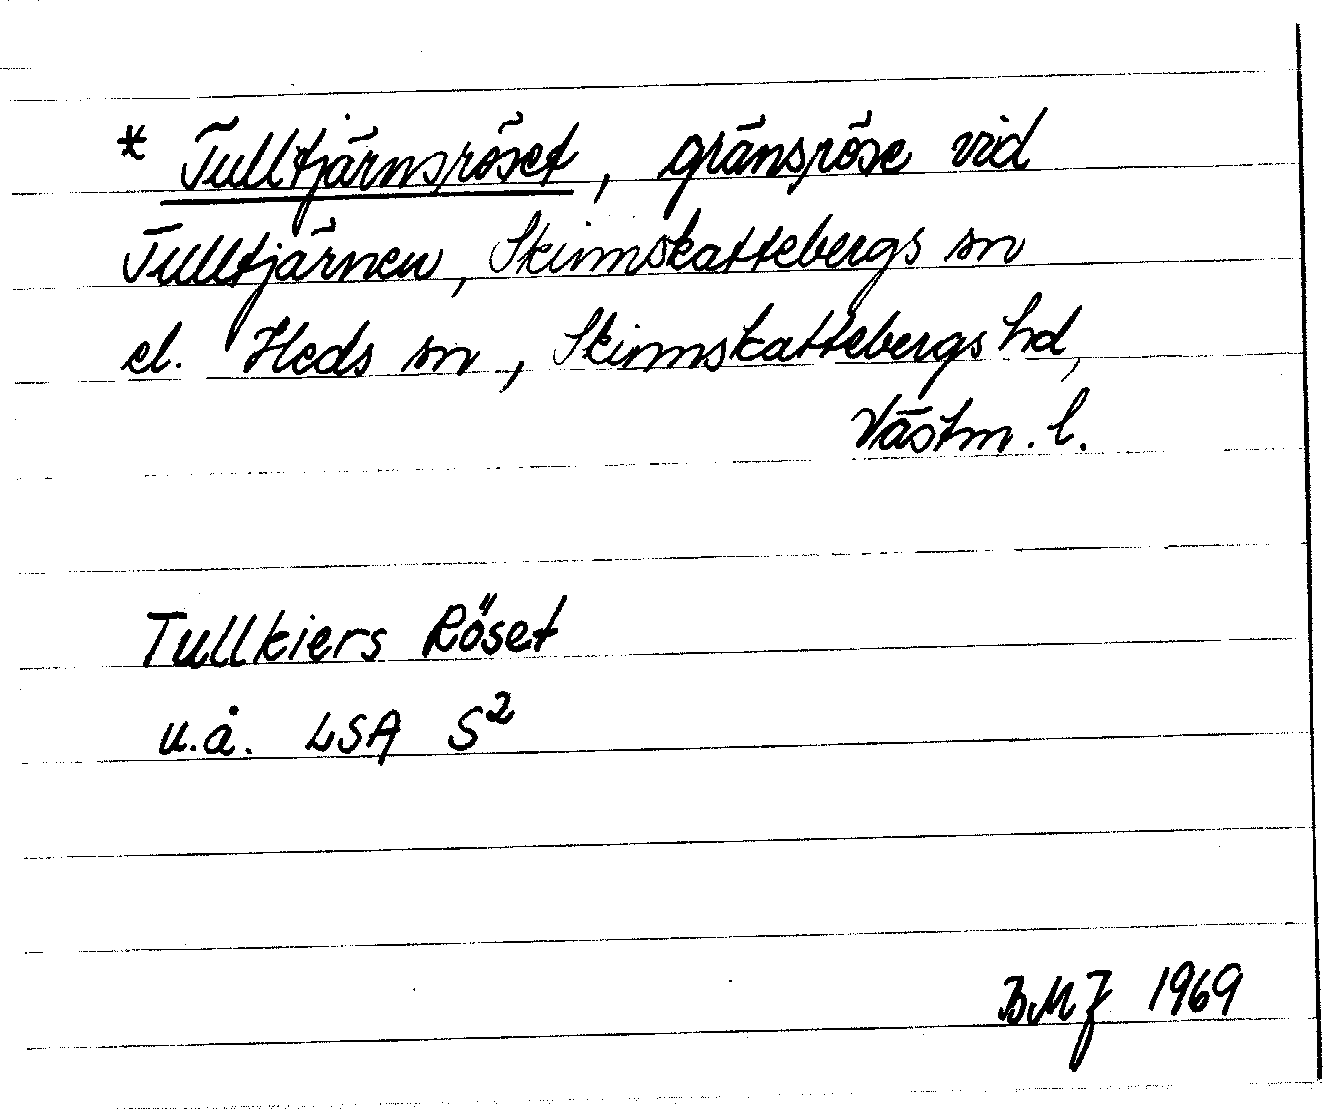 * Tulltjärnsröset, gränsröse vid
Tulltjärnen, Skinnskattebergs sn
el. Heds sn, Skinnskattebergs hd,
Västm. l.
Tullkiers Röset
u.å. LSA S²
BMJ 1969